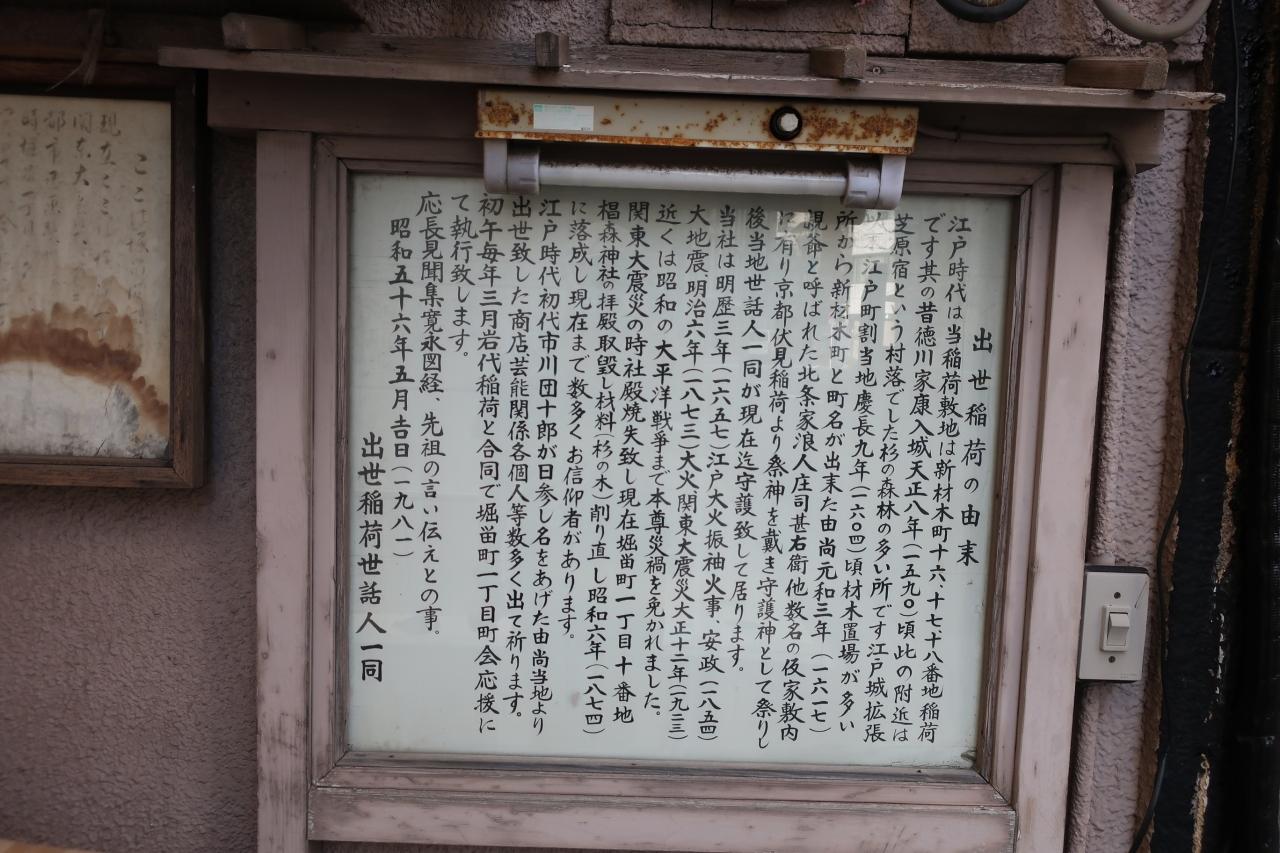 出世稲荷の由来
江戸時代は当稲荷敷地は新材木町十六、十七十八番地稲荷
です其の昔徳川家康入城天正八年(一五九〇)頃此の附近は
芝原宿という村落でした杉の森林の多い所です江戸城拡張
以来江戸町割当地慶長九年(一六〇四)頃材木置場が多い
所から新材木町と町名が出来た由尚元和三年(一六一七)
親爺と呼ばれた北条家浪人庄司甚右衛他数名の仮家敷内
に有り京都伏見稲荷より祭神を戴き守護神として祭りし
後当地世話人一同が現在迄守護致して居ります。
当社は明歴三年(一六五七)江戸大火振袖火事、安政(一八五四)
大地震、明治六年(一八七三)大火関東大震災大正十二年(一九二三)
近くは昭和の大平洋戦争まで本尊災禍を免かれました。
関東大震災の時社殿焼失致し現在堀留町一丁目十番地
椙森神社の拝殿取毀し材料(杉の木)削り直し昭和六年(一八七四)
に落成し現在まで数多くお信仰者があります。
江戸時代初代市川団十郎が日参し名をあげた由尚当地より
出世致した商店芸能関係各個人等数多く出て祈ります。
初午毎年三月岩代稲荷と合同で堀留町一丁目町会応援に
て執行致します。
応長見聞集寛永図経、先祖の言い伝えとの事。
昭和五十六年五月吉日(一九八一)
出世稲荷世話人一同